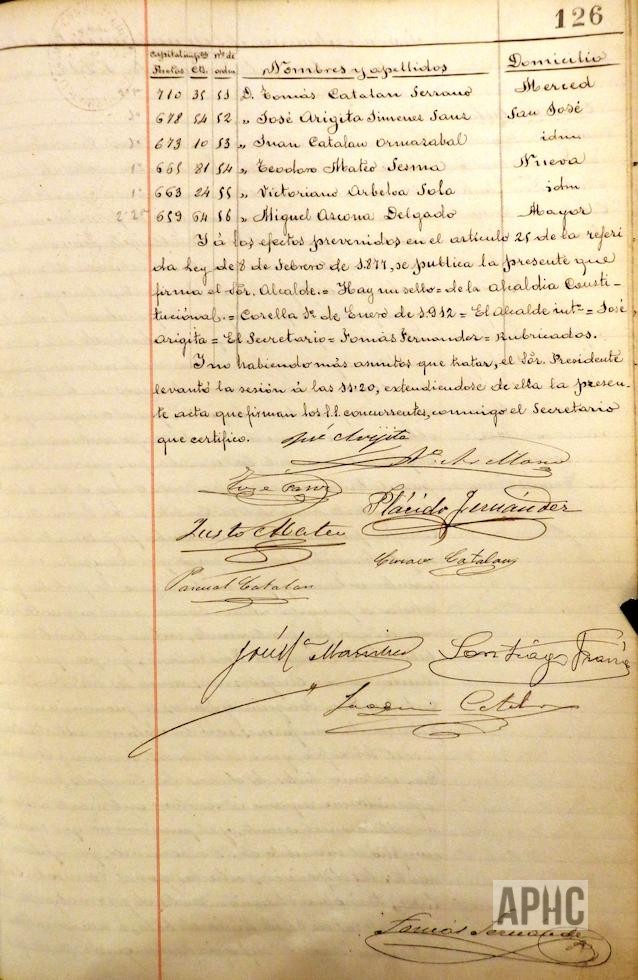 126
Capital imp.to nº de
Pesetas Cts. orden Nombres y apellidos Domicilio
710 35 51 D. Tomás Catalan Serrano Merced
678 54 52 „ José Arigita Jimenez Sanz San José
673 10 53 „ Juan Catalan Ormazabal idm
665 81 54 „ Teodoro Mateo Sesma Nueva
663 24 55 „ Victoriano Arbeloa Sola idm
659 64 56 „ Miguel Ascona Delgado Mayor
Y á los efectos prevenidos en el artículo 25 de la referi
da Ley de 8 de Febrero de 1.877, se publica la presente que
firma el Sor. Alcalde.= Hay un sello = de la alcaldia Consti-
tucional.= Corella 1º de Enero de 1.912 = El Alcalde intº = José
Arigita = El Secretario = Tomás Fernandez = Rubricados.
Y no habiendo más asuntos que tratar, el Sor. Presidente
levantó la sesión á las 11'20, extendiendose de ella la presen-
te acta que firman los S.S. concurrentes, conmigo el Secretario
que certifico. José Arigita
José
Plácido Fernández
Justo Mateo
Catalan
Pascual Catalan
José Mª
Santiago
Joaquin Catalan
APHC
Tomás Fernandez